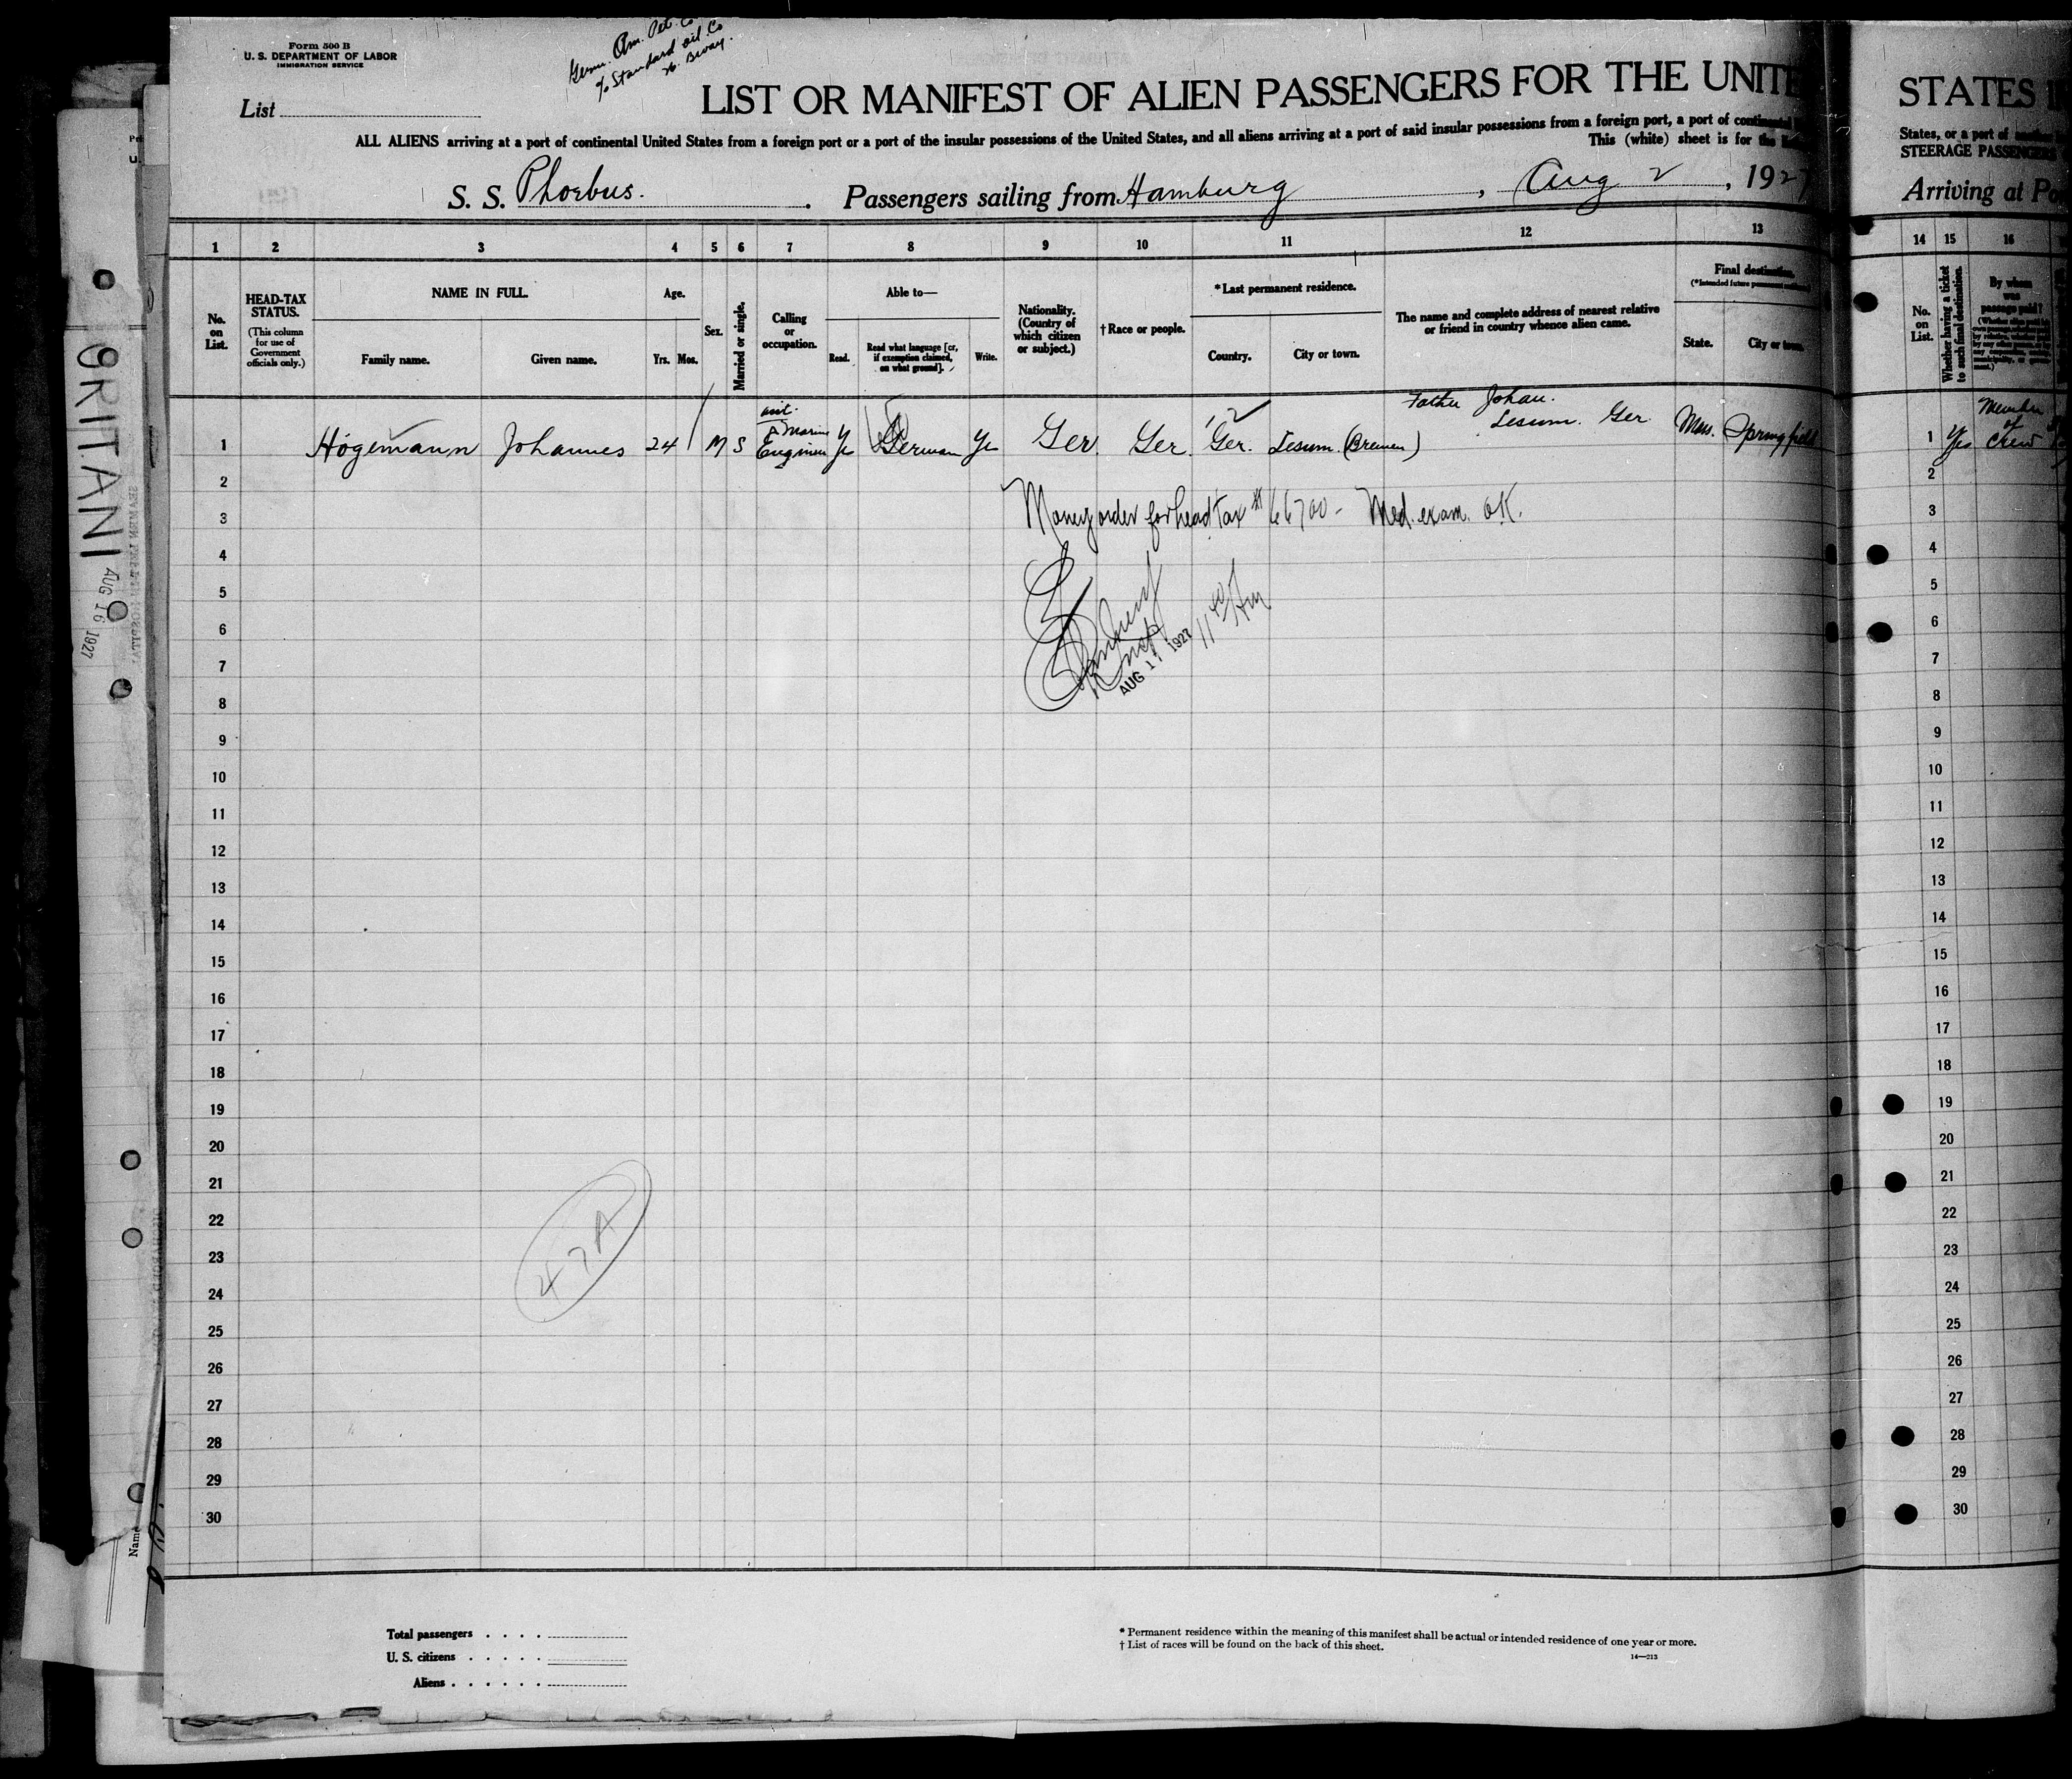 Form 500 B
U. S. DEPARTMENT OF LABOR
IMMIGRATION SERVICE
Germ. Am. Pet. Co
℅ Standard oil Co
26 Bway.
List
LIST OR MANIFEST OF ALIEN PASSENGERS FOR THE UNITE
ALL ALIENS arriving at a port of continental United States from a foreign port or a port of the insular possessions of the United States, and all aliens arriving at a port of said insular possessions from a foreign port, a port of continental
This (white) sheet is for the
S. S. Phoebus. Passengers sailing from Hamburg, Aug 2, 1927
1 2 3 4 5 6 7 8 9 10 11 12 13
No. on List.
HEAD-TAX STATUS.
(This column for use of Government officials only.)
NAME IN FULL.
Family name. Given name.
Age.
Yrs. Mos.
Sex.
Married or single.
Calling or occupation.
Able to—
Read. Read what language [or, if exemption claimed, on what ground]. Write.
Nationality. (Country of which citizen or subject.)
† Race or people.
* Last permanent residence.
Country. City or town.
The name and complete address of nearest relative or friend in country whence alien came.
Final destination.
(* Intended future permanent
State. City or town.
1 Högemann Johannes 24 M S Marine Engineer Yes German Yes Ger. Ger. Ger. Lesum (Bremen) Father Johan. Lesum. Ger Mass. Springfield
2
3
Money order for head tax # 66700 - Med. exam. OK.
4
5
6
7
AUG 17 1927
11 40 AM
8
9
10
11
12
13
14
15
16
17
18
19
20
21
22
23
24
25
26
27
28
29
30
47A
Total passengers
U. S. citizens
Aliens
* Permanent residence within the meaning of this manifest shall be actual or intended residence of one year or more.
† List of races will be found on the back of this sheet.
14—213
STATES I
States, or a port of another
STEERAGE PASSENGERS
Arriving at Po
14 15 16
No. on List.
Whether having a ticket to such final destination.
By whom was passage paid?
1 Yes Member of Crew
2
3
4
5
6
7
8
9
10
11
12
13
14
15
16
17
18
19
20
21
22
23
24
25
26
27
28
29
30
9RITANI
AUG 16 1927
Name